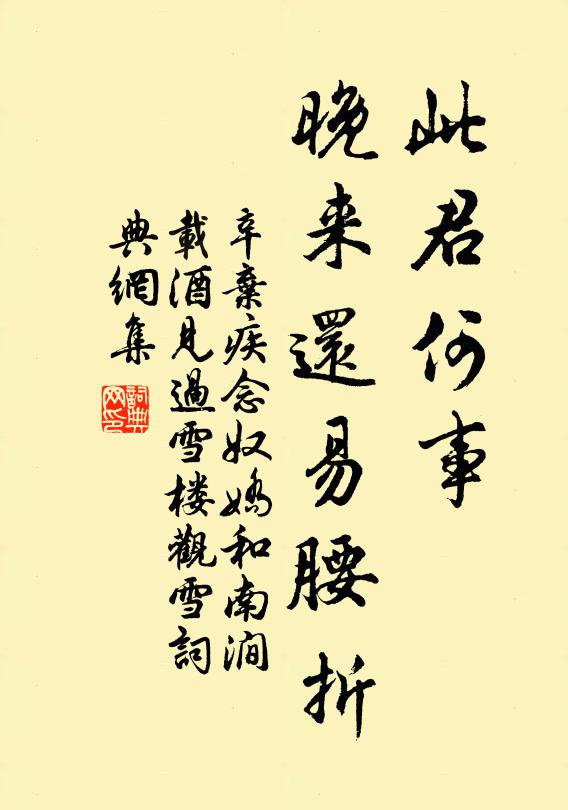 此君何事
晚来還易腰折
辛棄疾念奴嬌和南澗
載酒見過雪楼觀雪詞
典網集
詞典
网印